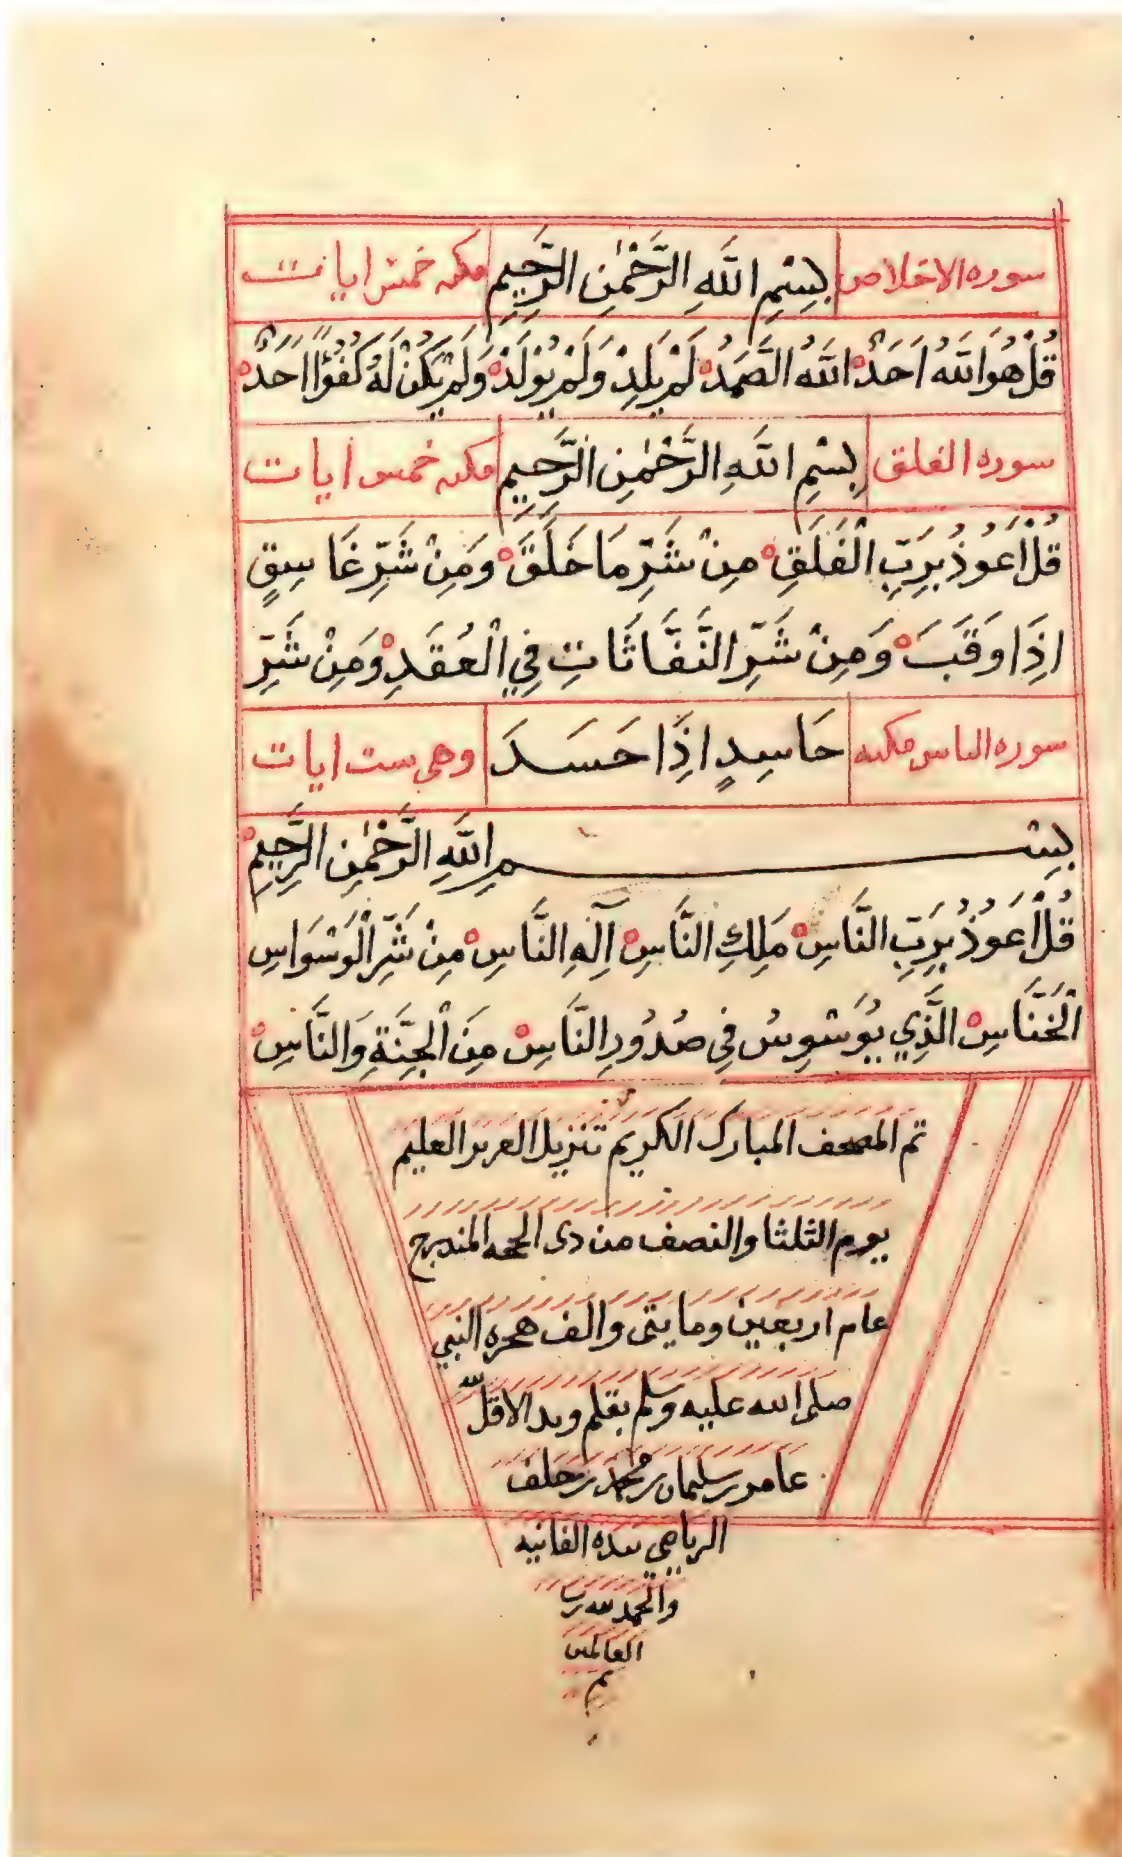 سوره الاخلاص بِسْمِ اللَّهِ الرَّحْمٰنِ الرَّحِيمِ مكيه خمس ايات
قُلْ هُوَ اللَّهُ اَحَدٌ اللَّهُ الصَّمَدُ لَمْ يَلِدْ وَلَمْ يُوْلَدْ وَلَمْ يَكُنْ لَهُ كُفُوًا اَحَدٌ
سوره الفلق بِسْمِ اللَّهِ الرَّحْمٰنِ الرَّحِيمِ مكيه خمس ايات
قُلْ اَعُوْذُ بِرَبِّ الْفَلَقِ مِنْ شَرِّ مَا خَلَقَ وَمِنْ شَرِّ غَاسِقٍ
اِذَا وَقَبَ وَمِنْ شَرِّ النَّفَّاثَاتِ فِي الْعُقَدِ وَمِنْ شَرِّ
سوره الناس مكيه حَاسِدٍ اِذَا حَسَدَ وهي ست ايات
بِسْمِ اللَّهِ الرَّحْمٰنِ الرَّحِيمِ
قُلْ اَعُوْذُ بِرَبِّ النَّاسِ مَلِكِ النَّاسِ اِلٰهِ النَّاسِ مِنْ شَرِّ الْوَسْوَاسِ
الْخَنَّاسِ الَّذِي يُوَسْوِسُ فِي صُدُورِ النَّاسِ مِنَ الْجِنَّةِ وَالنَّاسِ
تم المصحف المبارك الكريم تنزيل العزيز العليم
يوم الثلثا والنصف من ذي الحجه المندرج
عام اربعين ومايتى والف هجره النبي
صلى الله عليه وسلم بقلم ويد الاقل لله
عامر بن سليمان بن محمد بن خلف
الرياحي بيده الفانيه
والحمد لله رب
العالمين
تم